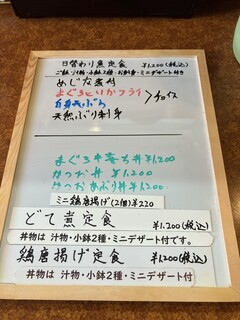 日替わり煮定食 ¥1,200(税込)
ご飯・汁物・小鉢2種・お刺身・ミニデザート付き
めじな煮付
まぐろといかフライ
白身天ぷら >チョイス
天然ぶり刺身
まぐろ中落ち丼 ¥1,200
かつお丼 ¥1,200
かつおあぶり丼 ¥1,200
ミニ鶏唐揚げ(2個)¥220
どて煮定食 ¥1,200(税込)
丼物は 汁物・小鉢2種・ミニデザート付です。
鶏唐揚げ定食 ¥1,200(税込)
丼物は 汁物・小鉢2種・ミニデザート付